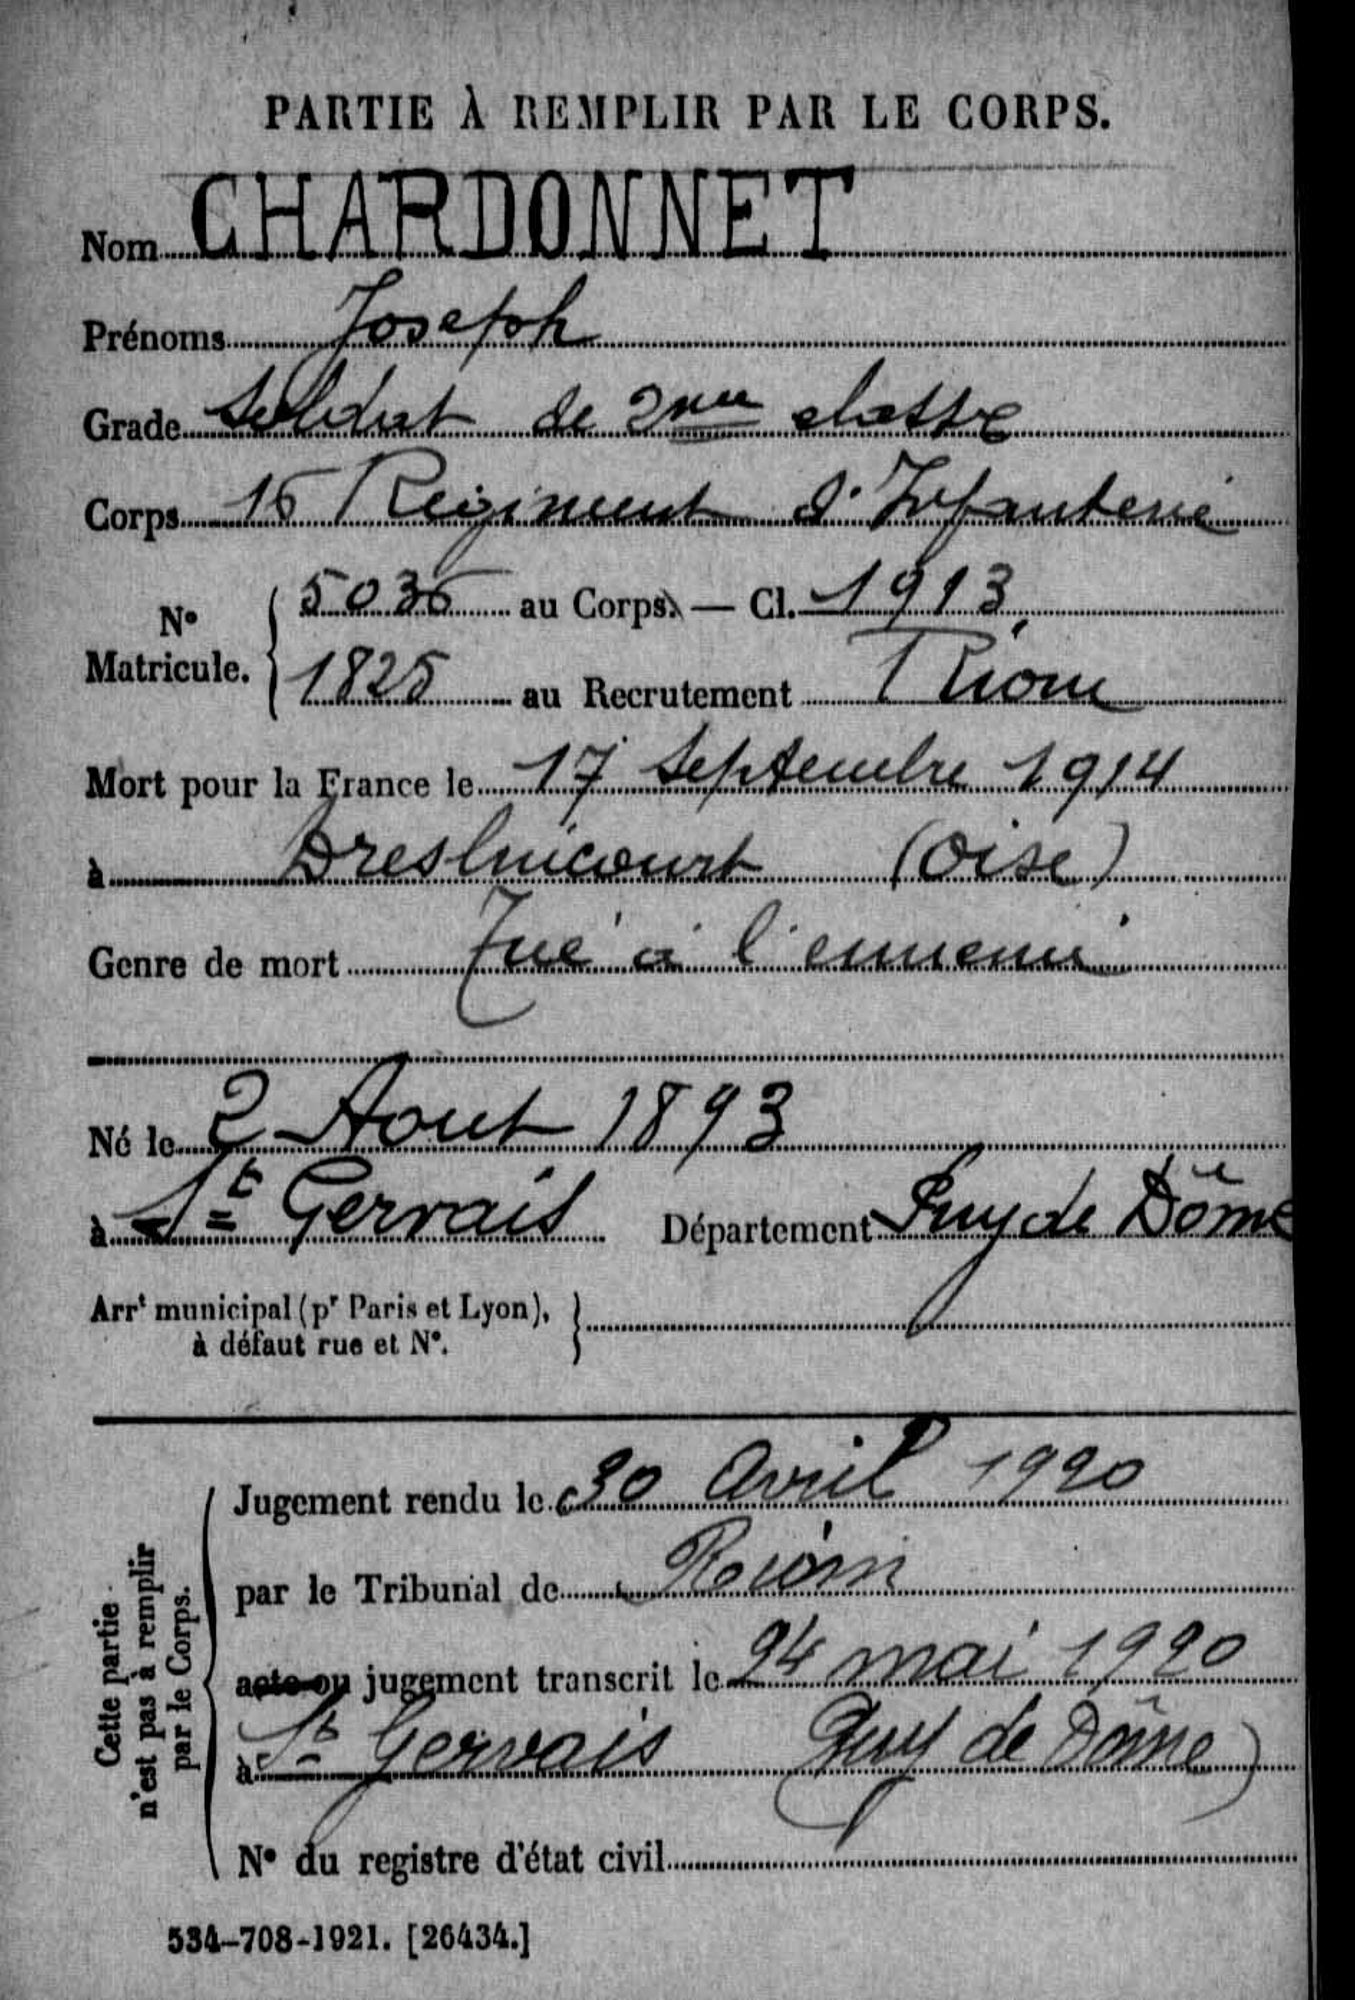 PARTIE À REMPLIR PAR LE CORPS.
Nom CHARDONNET
Prénoms Joseph
Grade Soldat de 2me classe
Corps 16 Régiment d'Infanterie
N° Matricule. 5036 au Corps. — Cl. 1913
1825 au Recrutement Riom
Mort pour la France le 17 Septembre 1914
à Dreslincourt (Oise)
Genre de mort Tué à l'ennemi
Né le 2 Aout 1893
à St Gervais Département Puy de Dôme
Arrt municipal (pr Paris et Lyon),
à défaut rue et N°.
Cette partie
n'est pas à remplir
par le Corps.
Jugement rendu le 30 Avril 1920
par le Tribunal de Riom
acte ou jugement transcrit le 24 mai 1920
à St Gervais (Puy de Dôme)
N° du registre d'état civil
534-708-1921. [26434.]